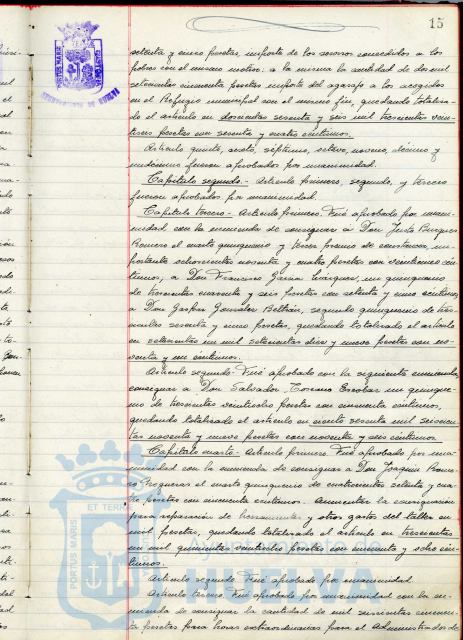 15
setenta y cinco pesetas, importe de los socorros concedidos a los
pobres con el mismo motivo: a la misma la cantidad de dos mil
setecientas cincuenta pesetas importe del agasajo a los acogidos
en el Refugio municipal con el mismo fin, quedando totaliza-
do el artículo en doscientas sesenta y seis mil trescientas vein-
titres pesetas con sesenta y cuatro céntimos.
Artículo quinto, sexto, séptimo, octavo, noveno, décimo y
undécimo fueron aprobados por unanimidad.
Capítulo segundo.- Artículo primero, segundo, y tercero
fueron aprobados por unanimidad.
Capítulo tercero.- Artículo primero. Fué aprobado por unani-
midad con la enmienda de consignar a Don Justo Burgues
Romero el cuarto quinquenio y tercer premio de constancia, im-
portante ochocientas noventa y cuatro pesetas con veintinueve cén-
timos, a Don Francisco Garcia un quinquenio
de trescientas cuarenta y seis pesetas con setenta y cinco céntimos,
a Don Gaspar Gonzalez Beltrán, segundo quinquenio de tres-
cientas setenta y cinco pesetas, quedando totalizado el artículo
en setecientas un mil setecientas diez y nueve pesetas con no-
venta y un céntimos.
Artículo segundo. Fué aprobado con la siguiente enmienda,
consignar a Don Salvador Moreno Escobar un quinque-
nio de trescientas veintiocho pesetas con cincuenta céntimos,
quedando totalizado el artículo en ciento sesenta mil seiscien-
tas noventa y nueve pesetas con noventa y seis céntimos
Capítulo cuarto.- Artículo primero. Fué aprobado por una-
nimidad con la enmienda de consignar a Don Joaquin Rome-
ro Nogueras el cuarto quinquenio de cuatrocientas setenta y cua-
tro pesetas con cincuenta céntimos. Aumentar la consignación
para reparación de herramientas y otros gastos del taller en
mil pesetas, quedando totalizado el artículo en trescientas
un mil quinientas veintiocho pesetas con cincuenta y ocho cén-
timos.
Artículo segundo. Fué aprobado por unanimidad
Artículo tercero. Fué aprobado por unanimidad con la en-
mienda de consignar la cantidad de mil seiscientas cincuen-
ta pesetas para horas extraordinarias para el Administrador de
PORTUS MARIS
ET TERRAE
Ayuntamiento
HUELVA